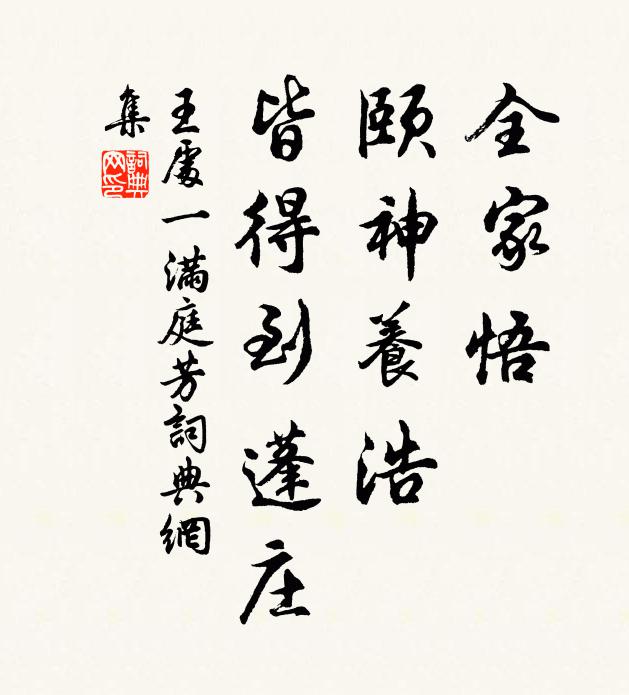 全家悟
頤神養浩
皆得到蓬庄
王處一滿庭芳詞典網
集
詞典
网印